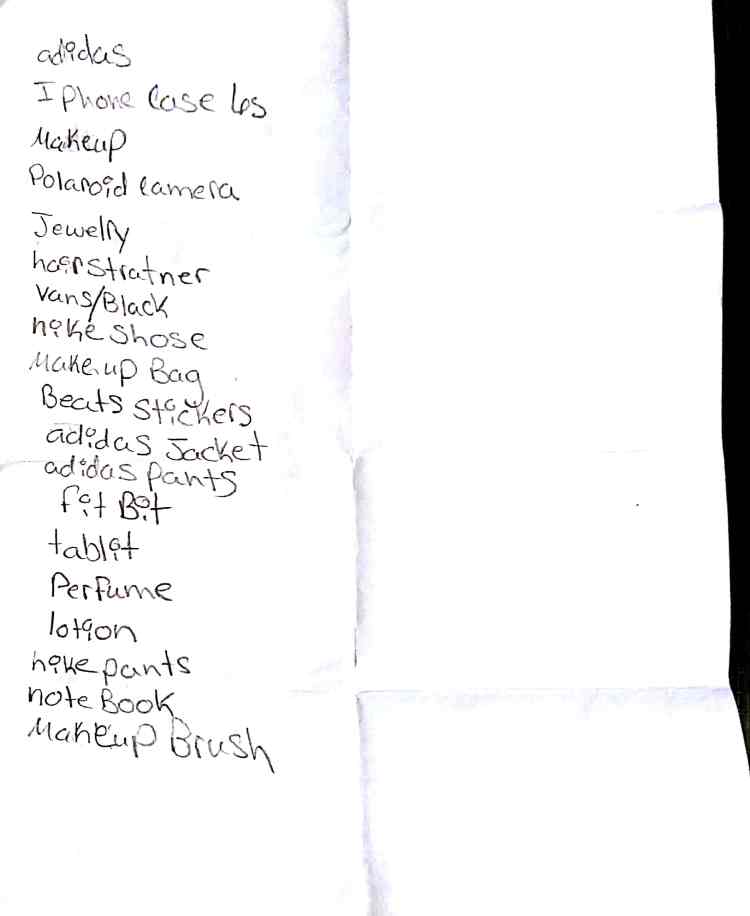 adidas
I Phone Case 6s
Makeup
Polaroid Camera
Jewelry
hair Stratner
Vans/Black
nike shose
Makeup Bag
Beats stickers
adidas Jacket
adidas pants
fit Bit
tablit
Perfume
lotion
nike pants
note Book
Makeup Brush